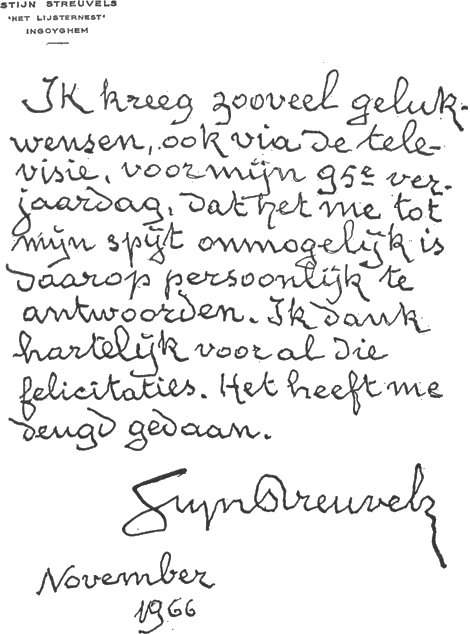 STIJN STREUVELS
'HET LIJSTERNEST'
INGOYGHEM
Ik kreeg zooveel geluk-
wensen, ook via de tele-
visie, voor mijn 95e ver-
jaardag, dat het me tot
mijn spijt onmogelijk is
daarop persoonlijk te
antwoorden. Ik dank
hartelijk voor al die
felicitaties. Het heeft me
deugd gedaan.
Stijn Streuvels
November
1966